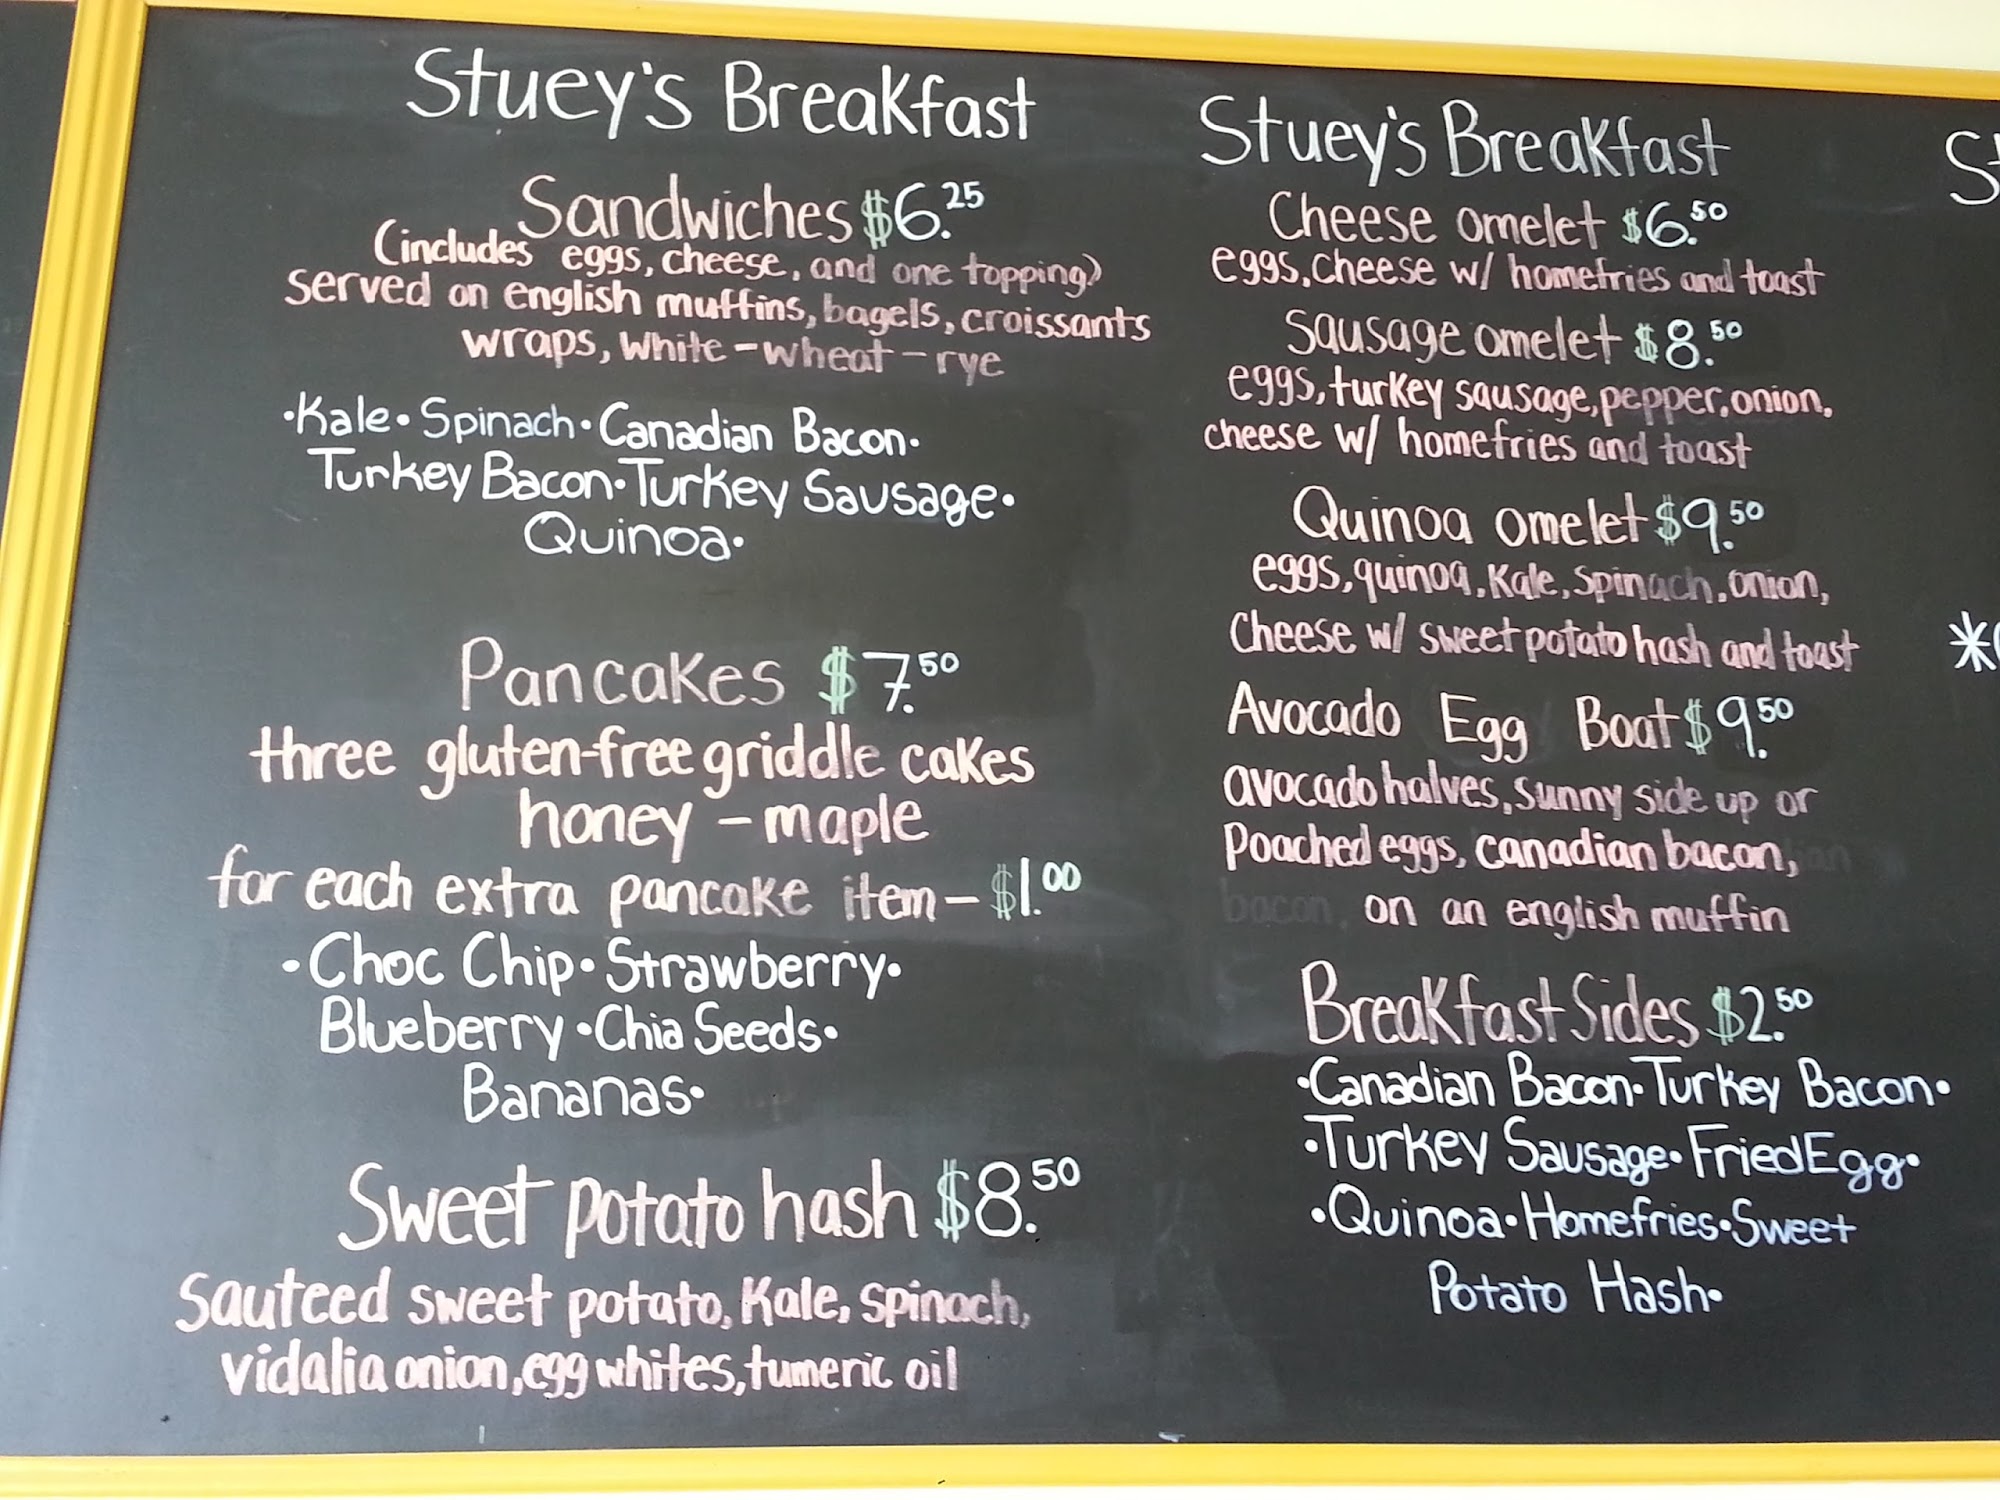 Stuey's Breakfast
Sandwiches $6.25
(includes eggs, cheese, and one topping)
served on english muffins, bagels, croissants
wraps, white - wheat - rye
•Kale• Spinach• Canadian Bacon•
Turkey Bacon• Turkey Sausage•
Quinoa•
Pancakes $7.50
three gluten-free griddle cakes
honey - maple
for each extra pancake item - $1.00
•Choc Chip• Strawberry•
Blueberry •Chia Seeds•
Bananas•
Sweet potato hash $8.50
Sauteed sweet potato, Kale, spinach,
vidalia onion, egg whites, tumeric oil
Stuey's Breakfast
Cheese omelet $6.50
eggs, cheese w/ homefries and toast
Sausage omelet $8.50
eggs, turkey sausage, pepper, onion,
cheese w/ homefries and toast
Quinoa omelet $9.50
eggs, quinoa, Kale, Spinach, onion,
Cheese w/ sweet potato hash and toast
Avocado Egg Boat $9.50
avocado halves, sunny side up or
Poached eggs, canadian bacon,
bacon, on an english muffin
Breakfast Sides $2.50
•Canadian Bacon• Turkey Bacon•
•Turkey Sausage• Fried Egg•
•Quinoa• Homefries• Sweet
Potato Hash•
St
*